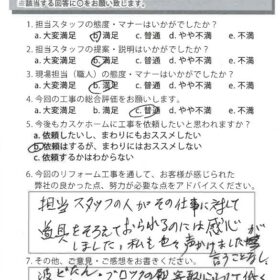 ※該当する回答に○をお願い致します。
1. 担当スタッフの態度・マナーはいかがでしたか?
a. 大変満足 b. 満足 c. 普通 d. やや不満 e. 不満
2. 担当スタッフの提案・説明はいかがでしたか?
a. 大変満足 b. 満足 c. 普通 d. やや不満 e. 不満
3. 現場担当(職人)の態度・マナーはいかがでしたか?
a. 大変満足 b. 満足 c. 普通 d. やや不満 e. 不満
4. 今回の工事の総合評価をお願いします。
a. 大変満足 b. 満足 c. 普通 d. やや不満 e. 不満
5. 今後もカスケホームに工事を依頼したいと思われますか?
a. 依頼したいし、まわりにもおススメしたい
b. 依頼はするが、まわりにはおススメしない
c. 依頼するかはわからない
6. 今回のリフォーム工事を通して、お客様が感じられた
弊社の良かった点、努力が必要な点をアドバイスください。
担当スタッフの人がその仕事に対して
道具をそろえておられるのには感心
しました、私も色々声かけましたが
言うことなし
7. その他、ご意見・ご感想をお書きください。